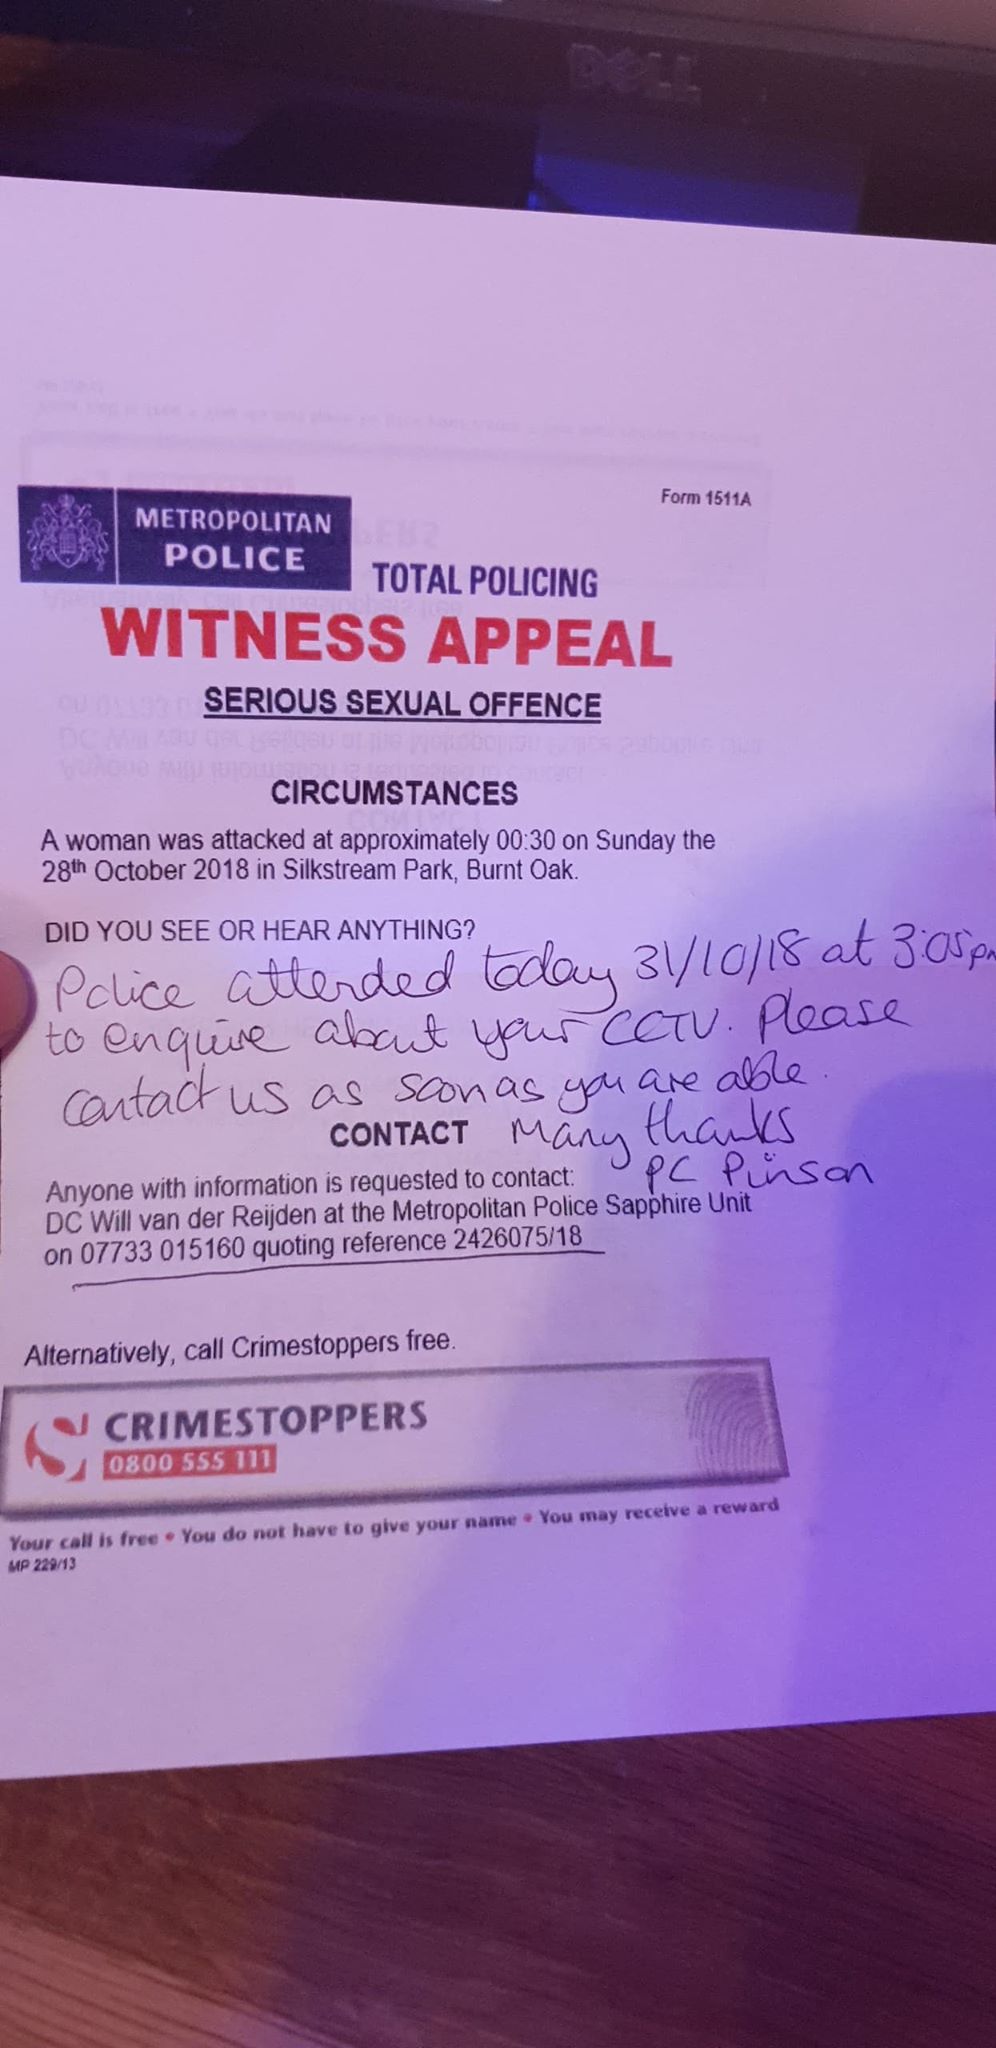 DELL
Form 1511A
METROPOLITAN
POLICE
TOTAL POLICING
WITNESS APPEAL
SERIOUS SEXUAL OFFENCE
CIRCUMSTANCES
A woman was attacked at approximately 00:30 on Sunday the
28th October 2018 in Silkstream Park, Burnt Oak.
DID YOU SEE OR HEAR ANYTHING?
Police attended today 31/10/18 at 3:05pm
to enquire about your CCTV. Please
contact us as soon as you are able.
CONTACT Many thanks
PC Pinson
Anyone with information is requested to contact:
DC Will van der Reijden at the Metropolitan Police Sapphire Unit
on 07733 015160 quoting reference 2426075/18
Alternatively, call Crimestoppers free.
CRIMESTOPPERS
0800 555 111
Your call is free • You do not have to give your name • You may receive a reward
MP 229/13